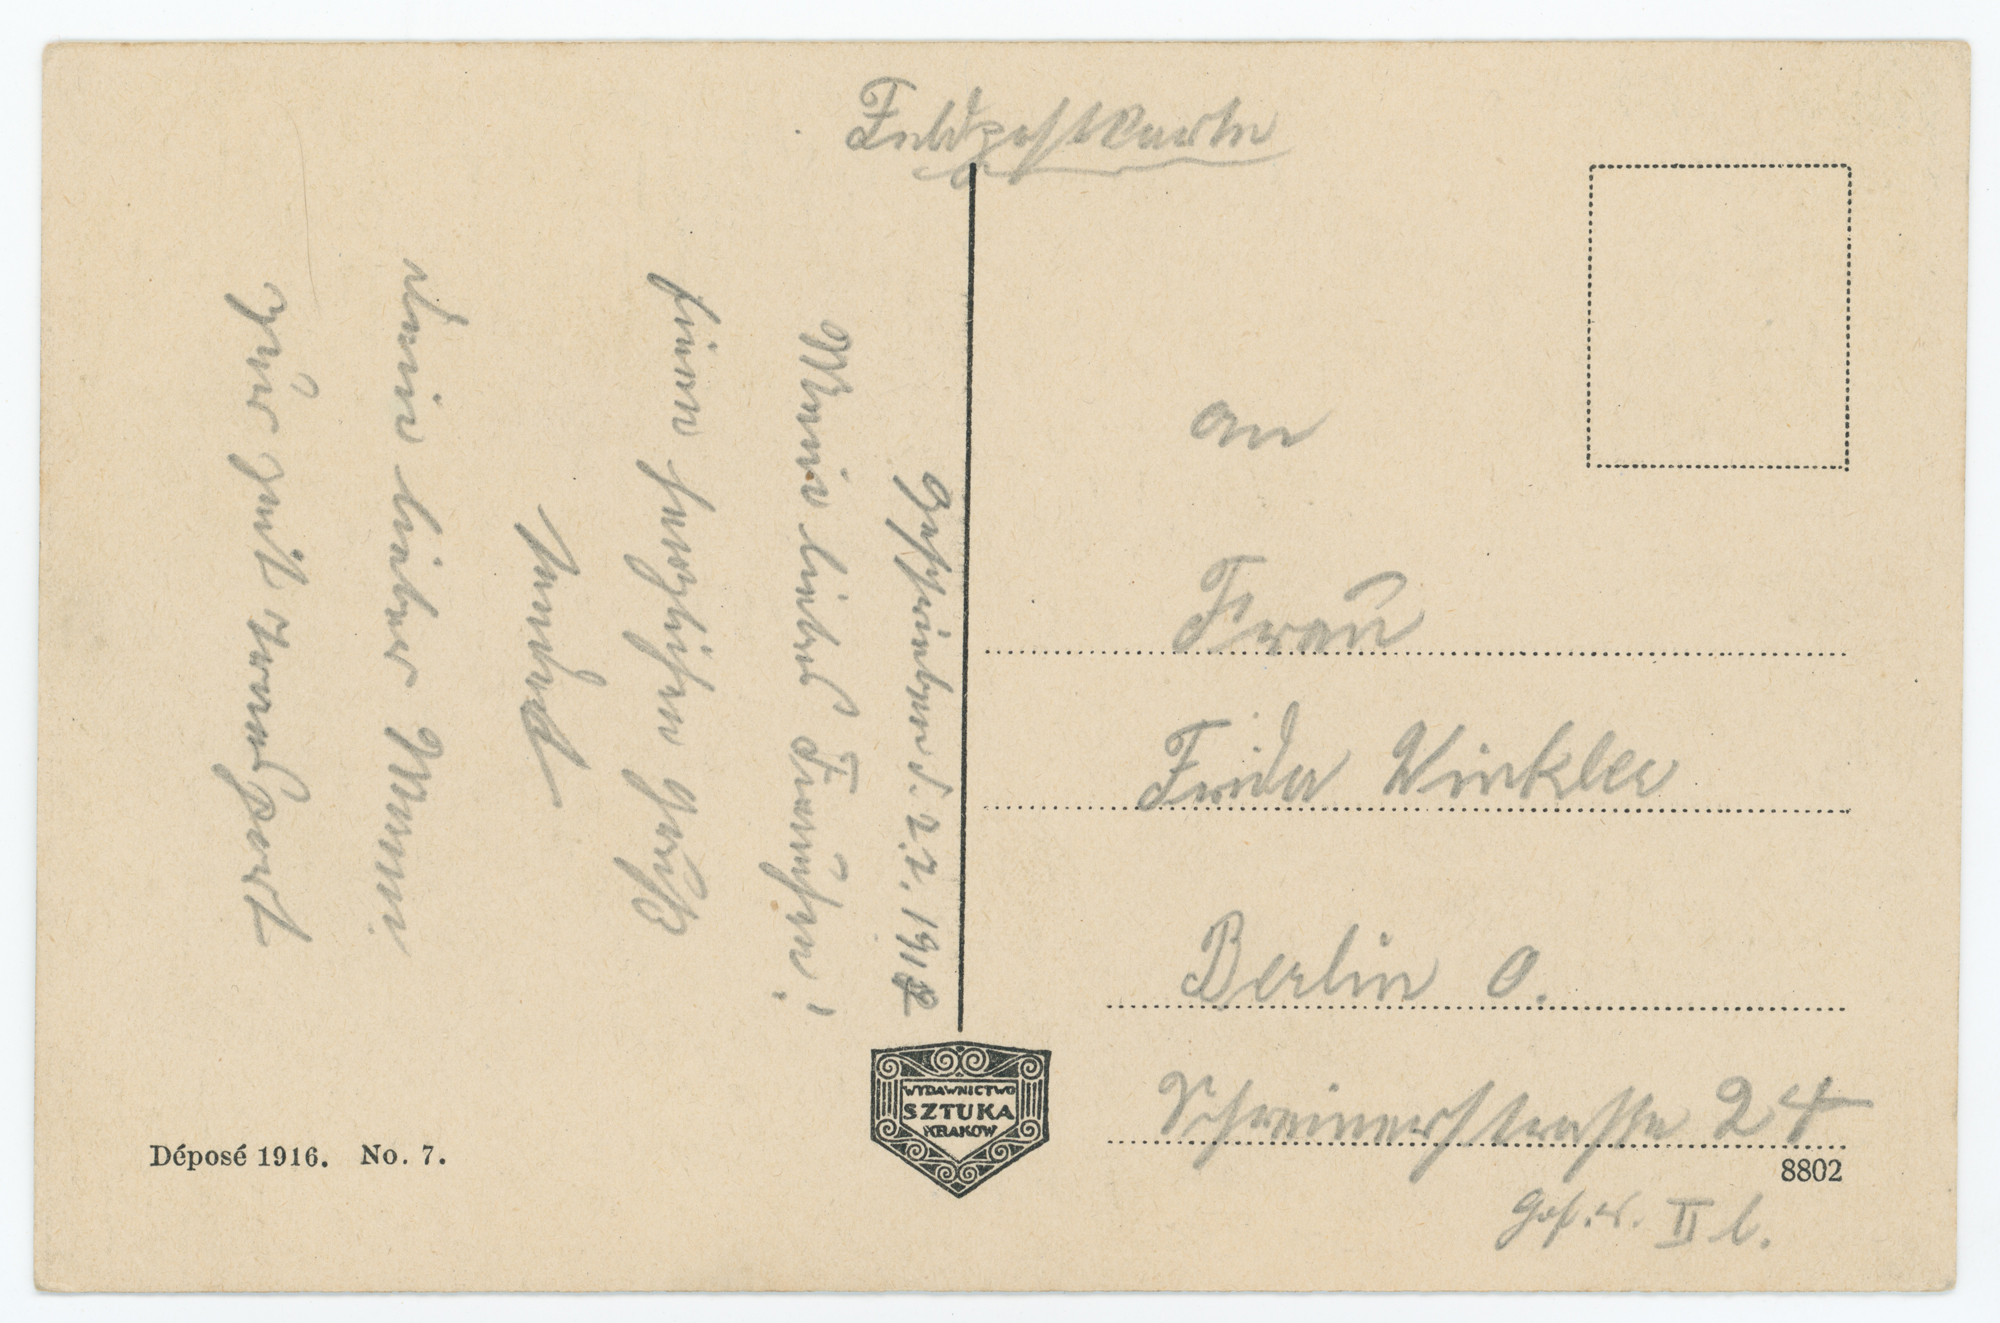 Feldpostkarte
Geschrieben d. 2.2. 1918
Mein liebes Frauchen!
Einen herzlichen Gruß
sendet
Dein lieber
zur Zeit Transport
an
Frau
Frida Winkler
Berlin O.
Schreinerstrasse 24
II l.
WYDAWNICTWO
SZTUKA
KRAKÓW
Déposé 1916. No. 7.
8802